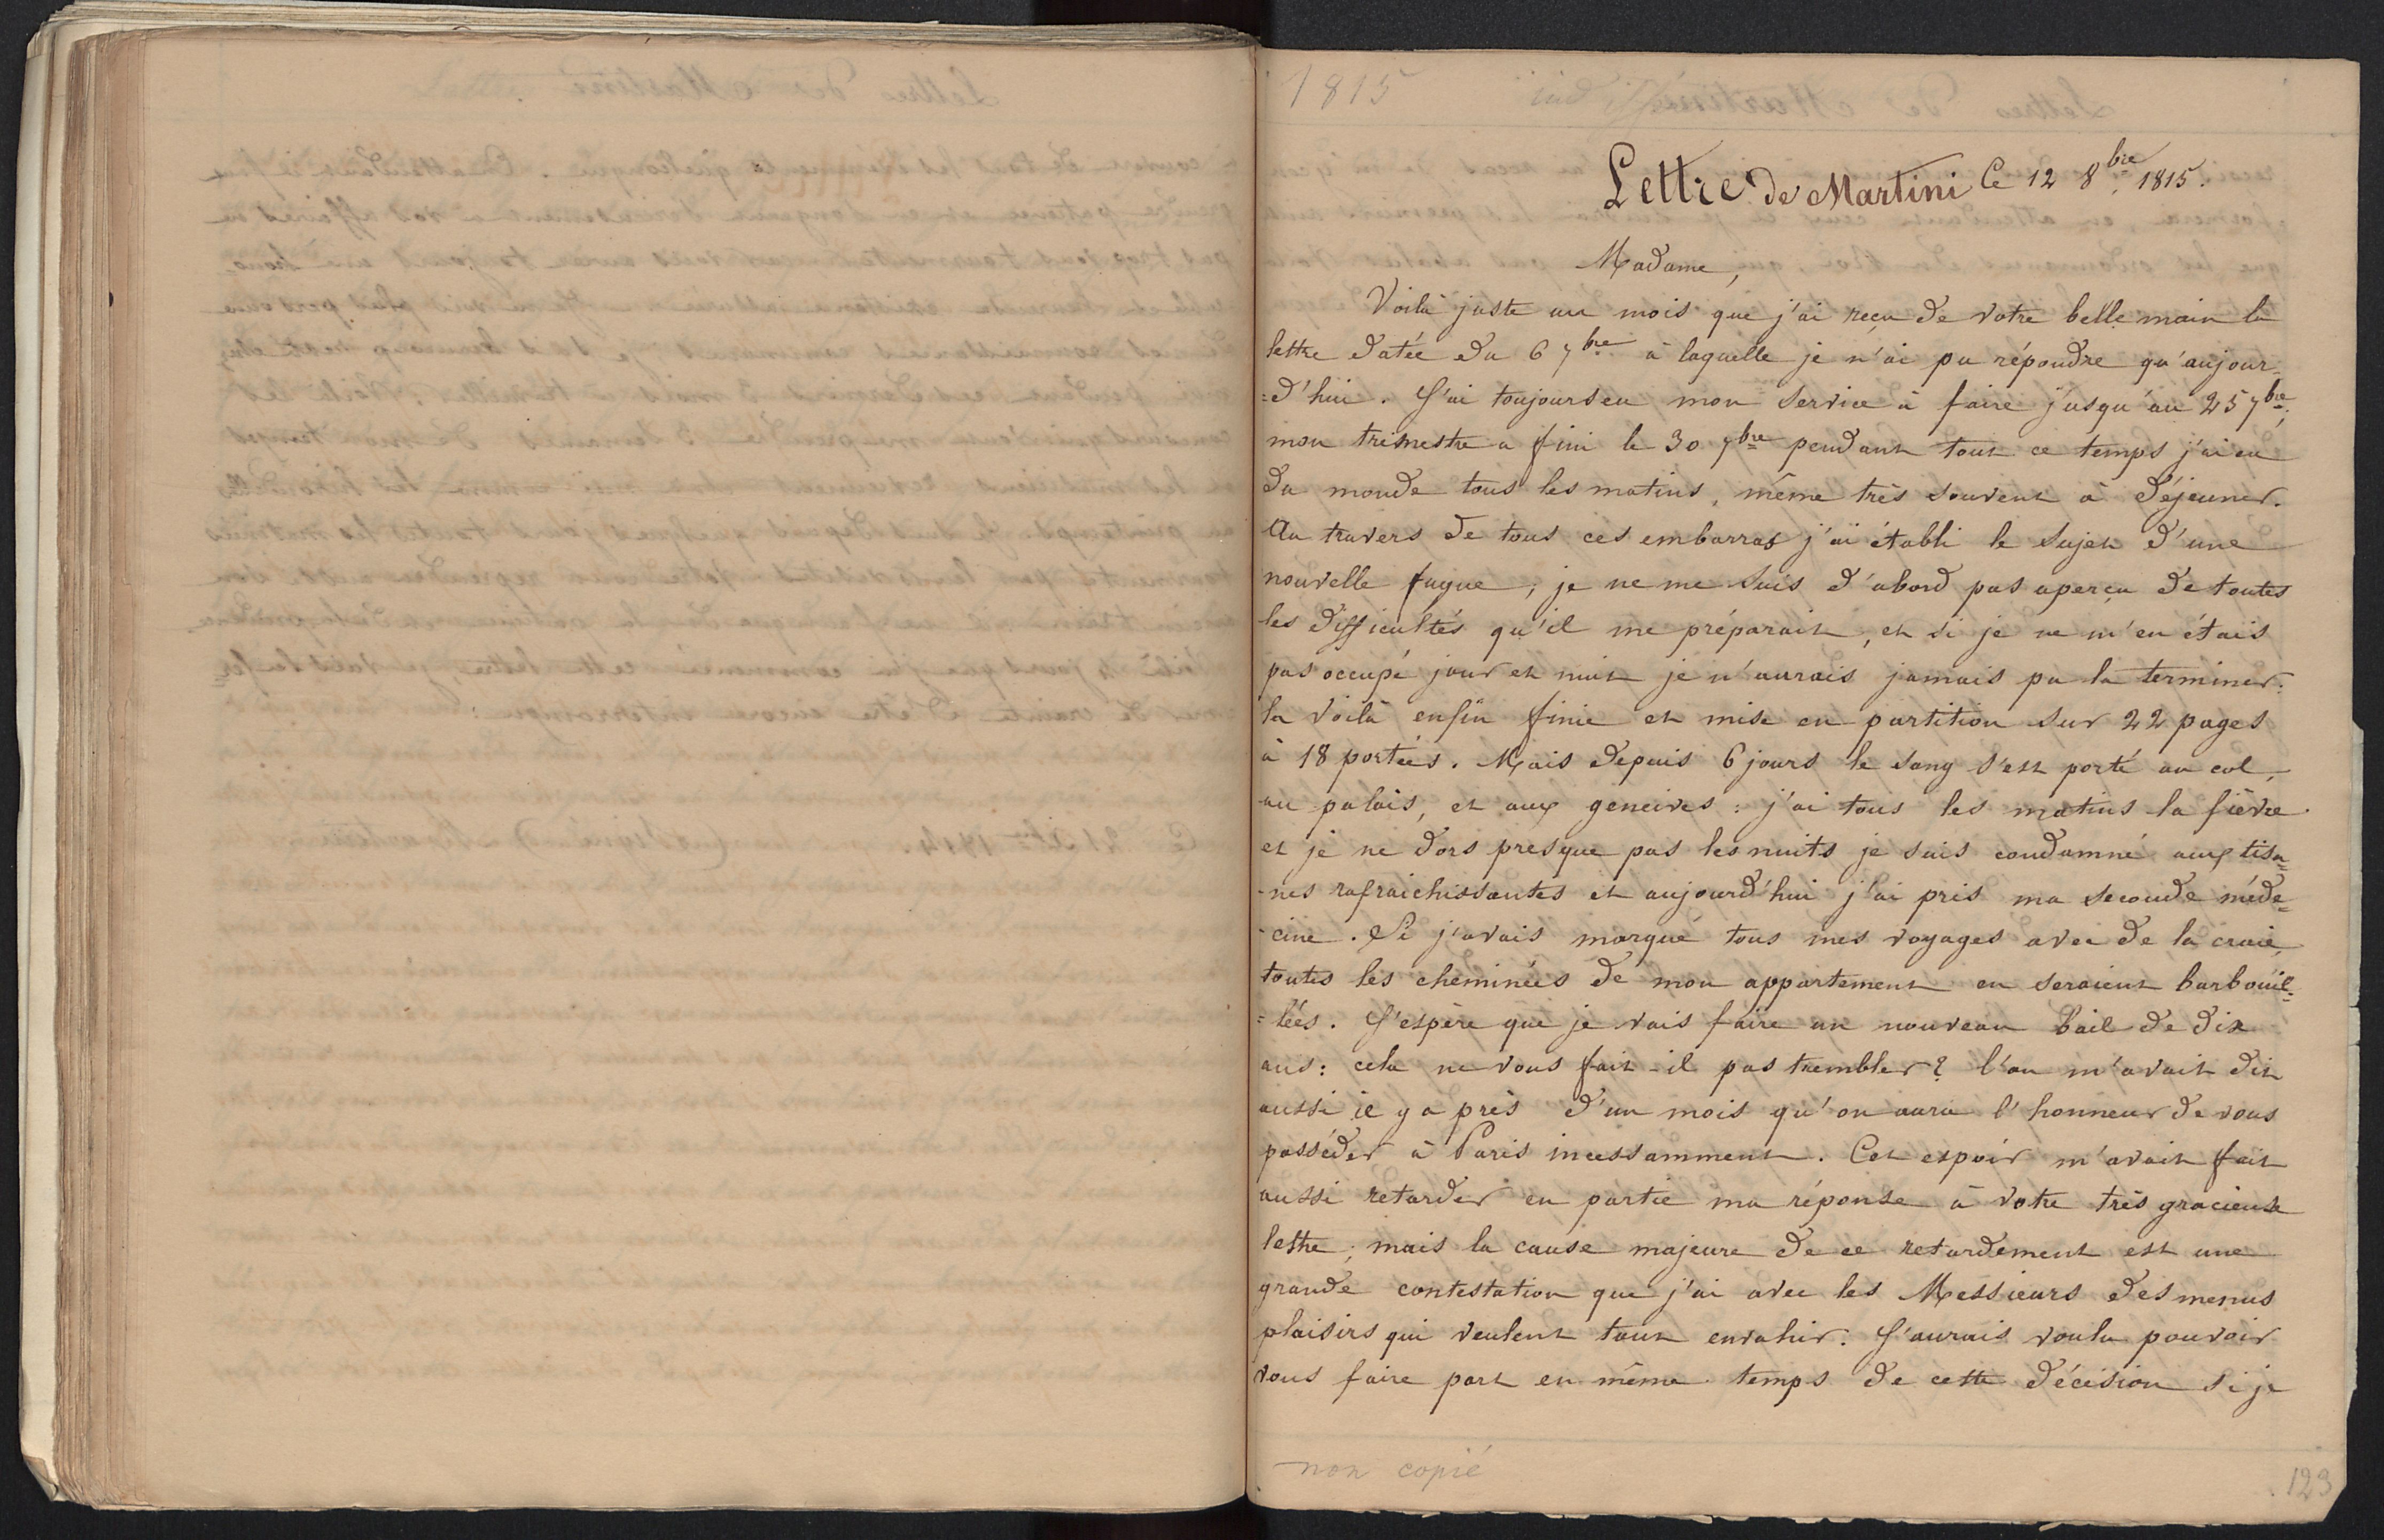 1815
indifférent
Lettre de Martini Ce 12 8bre 1815.
Madame,
Voilà juste un mois que j'ai reçu de votre belle main la
lettre datée du 6 7bre à laquelle je n'ai pu répondre qu'aujour-
=d'hui. J'ai toujours eu mon service à faire jusqu'au 25 7bre;
mon trimestre a fini le 30 7bre pendant tout ce temps j'ai eu
du monde tous les matins, même très souvent à déjeuner.
Au travers de tous ces embarras j'ai établi le sujet d'une
nouvelle fugue; je ne me suis d'abord pas aperçu de toutes
les difficultés qu'il me préparait, et si je ne m'en étais
pas occupé jour et nuit je n'aurais jamais pu la terminer:
la voilà enfin finie et mise en partition sur 22 pages
à 18 portées. Mais depuis 6 jours le sang s'est porté au col,
au palais, et aux gencives: j'ai tous les matins la fièvre
et je ne dors presque pas les nuits je suis condamné aux tisa=
-nes rafraichissantes et aujourd'hui j'ai pris ma seconde méde=
-cine. Si j'avais marqué tous mes voyages avec de la craie,
toutes les cheminées de mon appartement en seraient barbouil=
=lées. J'espère que je vais faire un nouveau bail de dix
ans: cela ne vous fait-il pas trembler? l'on m'avait dit
aussi il y a près d'un mois qu'on aura l'honneur de vous
posséder à Paris incessamment. Cet espoir m'avait fait
aussi retarder en partie ma réponse à votre très gracieuse
lettre; mais la cause majeure de ce retardement est une
grande contestation que j'ai avec les Messieurs des menus
plaisirs qui veulent tout envahir: J'aurais voulu pouvoir
vous faire part en même temps de cette décision si je
non copié
123